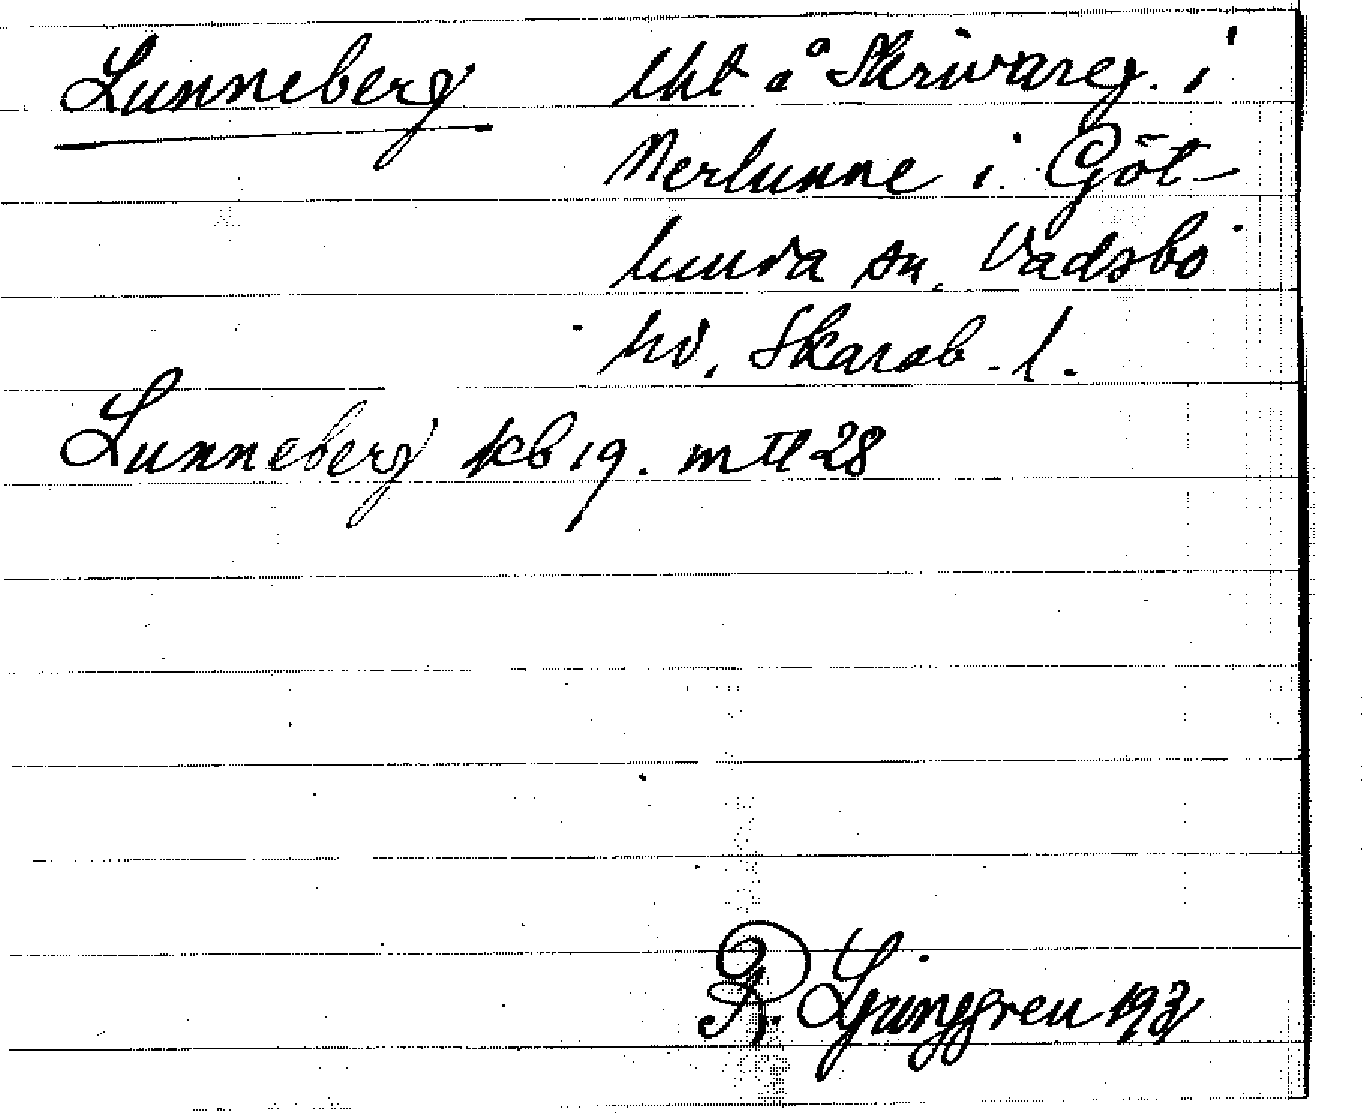 Lunneberg lht å Skrivareg. i
Nerlunne i Göt-
lunda sn. Vadsbo
hd. Skarab. l.
Lunneberg kb 19. mtl 28
R. Ljunggren 193